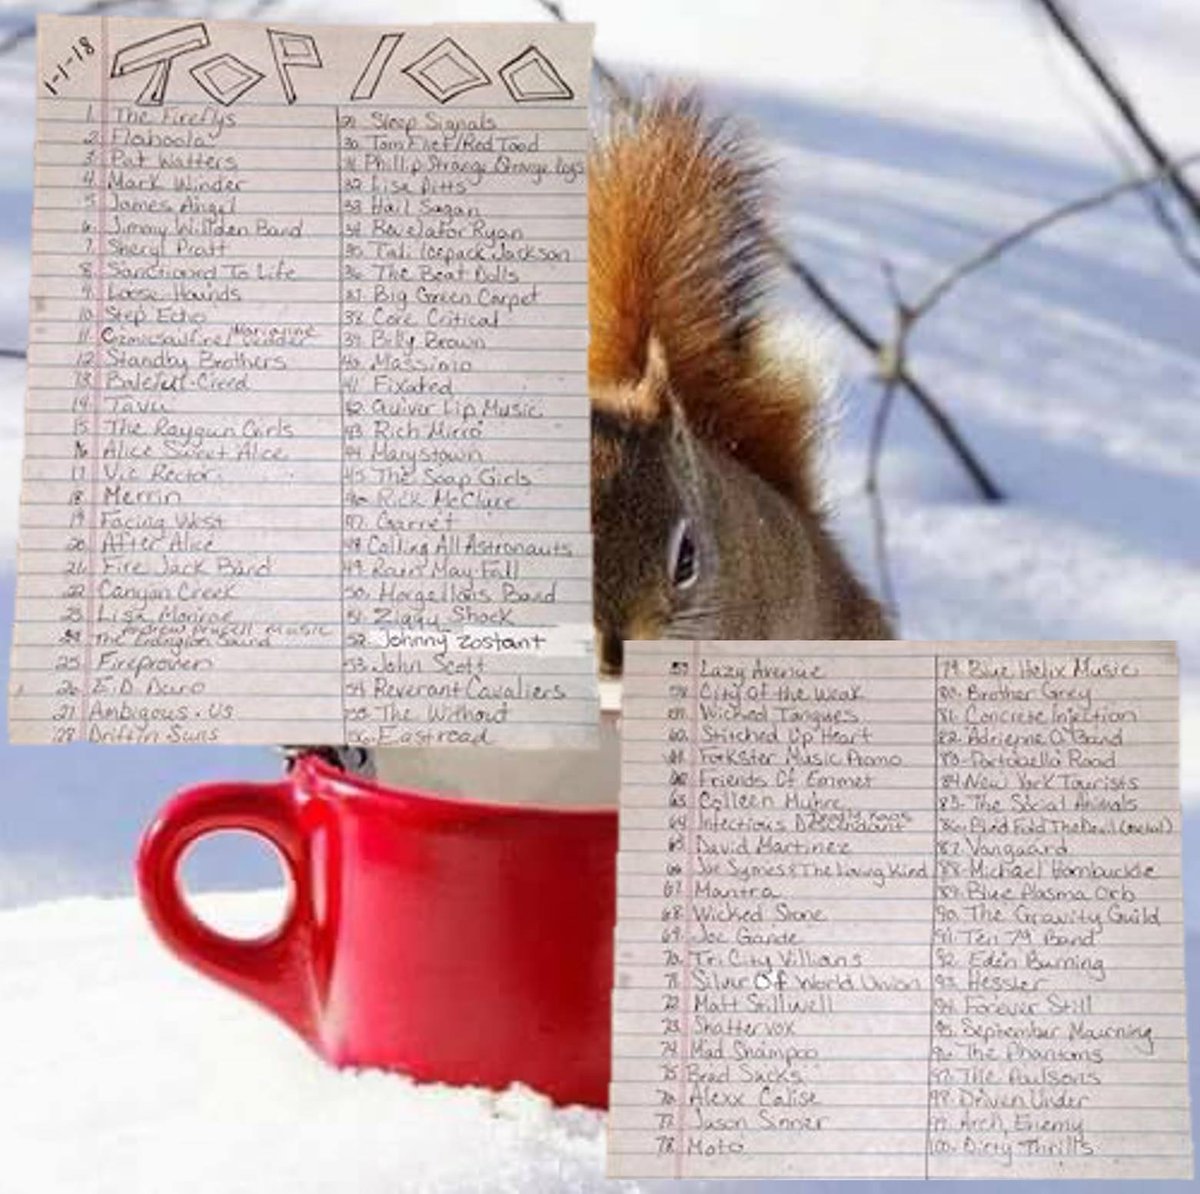 1-1-18
TOP 100
1. The Fireflys
2. Flahoola
3. Pat Watters
4. Mark Winder
5. James Angel
6. Jimmy Willden Band
7. Sheryl Pratt
8. Sanctioned To Life
9. Loose Hounds
10. Step Echo
11. Marianne
12. Standby Brothers
13. Baleful Creed
14. Tavu
15. The Raygun Girls
16. Alice Sweet Alice
17. Vic Rector
18. Merrin
19. Facing West
20. After Alice
21. Fire Jack Band
22. Canyon Creek
23. Lisa Monroe
24. The Sound Music
25. Fireproven
26.
27. Ambigous.us
28. Driftin Suns
29. Sleep Signals
30. Tom Flef/Red Toad
31. Phillip Strange
32. Lisa Pitts
33. Hail Sagan
34. Revelator Ryan
35. Tali Icepack Jackson
36. The Beat Dolls
37. Big Green Carpet
38. Core Critical
39. Billy Brown
40. Massimo
41. Fixated
42. Quiver Lip Music
43. Rich Mirra
44. Marystown
45. The Soap Girls
46. Rick McClure
47. Garret
48. Calling All Astronauts
49. Rain May Fall
50. Band
51. Ziggy Shock
52. Johnny Zostant
53. John Scott
54. Reverant Cavaliers
55. The Without
56. Eastroad
57. Lazy Avenue
58. City Of the Weak
59. Wicked Tongues
60. Stitched Up Heart
61. Forkster Music Promo
62. Friends Of Emmet
63. Colleen
64. Infectious Descendant
65. David Martinez
66. Joe Symes & The Loving Kind
67. Mantra
68. Wicked Stone
69. Joe Gande
70. Tri City Villians
71. Silver Of World Union
72. Matt Stillwell
73. Shattervox
74. Mad Shampoo
75. Brad Sacks
76. Alexx Calise
77. Jason Sinner
78. Moto
79. Blue Helix Music
80. Brother Grey
81. Concrete Injection
82. Adrienne O Band
83. Portobello Road
84. New York Tourists
85. The Social Animals
86. Blind Fold The Devil (metal)
87. Vanguard
88. Michael Hornbuckle
89. Blue Plasma Orb
90. The Gravity Guild
91. Ten 79 Band
92. Eden Burning
93. Hessler
94. Forever Still
95. September Mourning
96. The Phantoms
97. The Paulsons
98. Driven Under
99. Arch Enemy
100. Dirty Thrills